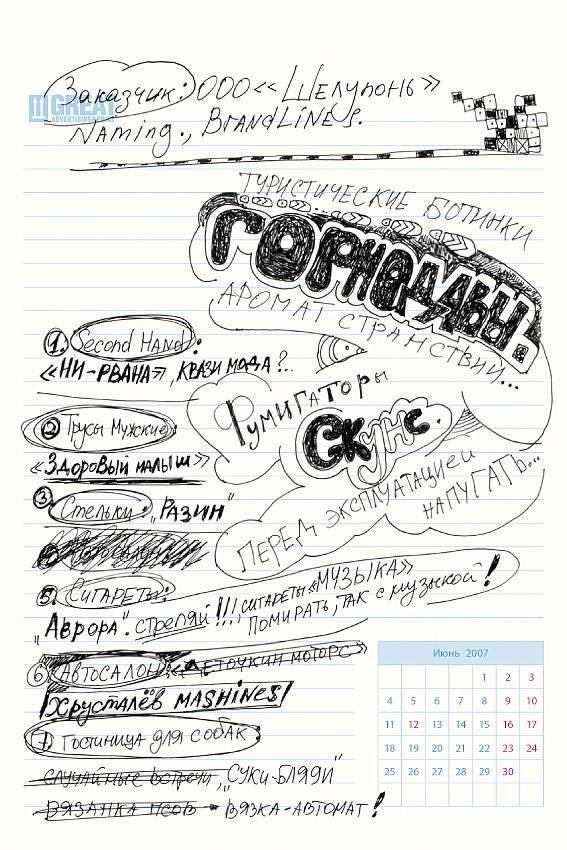 Заказчик: ООО «Шелупонь»
GREAT
ADVERTISING
Naming., BrandLines.
ТУРИСТИЧЕСКИЕ БОТИНКИ
ГОРНЯДАВЫ.
АРОМАТ СТРАНСТВИЙ...
1. Second Hand:
«НИ-РВАНА», КВАЗИ МОДА?..
ФУМИГАТОРЫ
СКУНС.
ПЕРЕД ЭКСПЛУАТАЦИЕЙ
НАПУГАТЬ...
2 Трусы Мужские:
«ЗДОРОВЫЙ МАЛЫШ»
3 Стельки: „РАЗИН"
5. СИГАРЕТЫ:
„АВРОРА". стреляй!!!
СИГАРЕТЫ «МУЗЫКА»
ПОМИРАТЬ, ТАК С МУЗЫКОЙ!
6 АВТОСАЛОН: МОТОРС»
ХРУСТАЛЁВ MASHINES
7 ГОСТИНИЦА ДЛЯ СОБАК
СЛУЧАЙНЫЕ ВСТРЕЧИ, „СУКИ-БЛЯДИ"
ВЯЗАНКА ПСОВ - ВЯЗКА-АВТОМАТ!
Июнь 2007
1 2 3
4 5 6 7 8 9 10
11 12 13 14 15 16 17
18 19 20 21 22 23 24
25 26 27 28 29 30